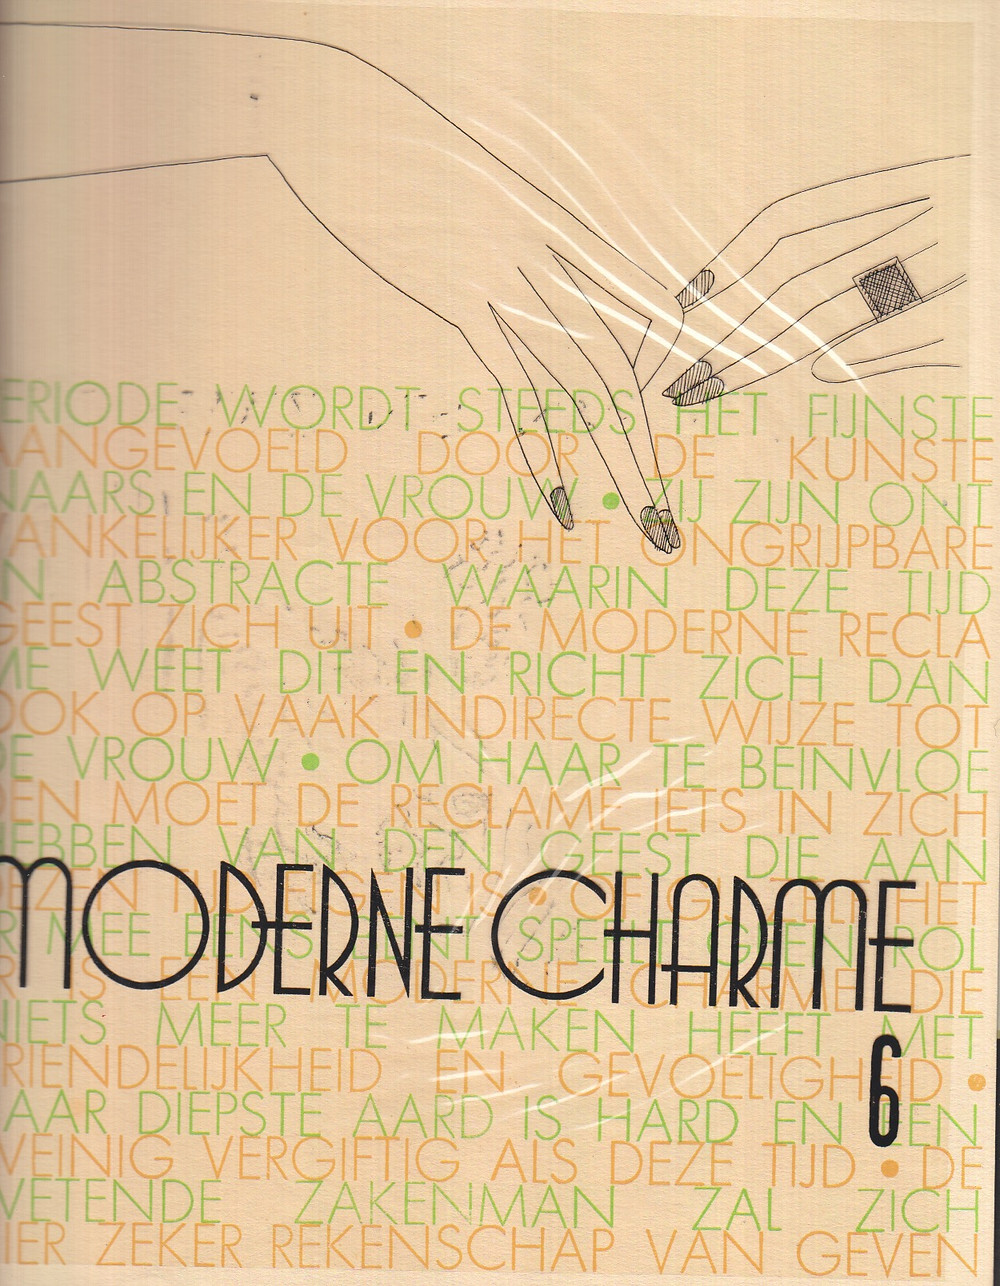 ERIODE WORDT STEEDS HET FIJNSTE
AANGEVOELD DOOR DE KUNSTE
NAARS EN DE VROUW • ZIJ ZIJN ONT
VANKELIJKER VOOR HET ONGRIJPBARE
N ABSTRACTE WAARIN DEZE TIJD
GEEST ZICH UIT • DE MODERNE RECLA
ME WEET DIT EN RICHT ZICH DAN
OOK OP VAAK INDIRECTE WIJZE TOT
DE VROUW • OM HAAR TE BEINVLOE
DEN MOET DE RECLAME IETS IN ZICH
HEBBEN VAN DEN GEEST DIE AAN
DEZEN TIJD EIGEN IS • OF HET
MODERNE CHARME
R MEE EENS BENT SPEELT GEEN ROL
R IS EEN MODERNE CHARME DIE
NIETS MEER TE MAKEN HEEFT MET
RIENDELIJKHEID EN GEVOELIGHEID •
6
AAR DIEPSTE AARD IS HARD EN EEN
WEINIG VERGIFTIG ALS DEZE TIJD • DE
WETENDE ZAKENMAN ZAL ZICH
IER ZEKER REKENSCHAP VAN GEVEN